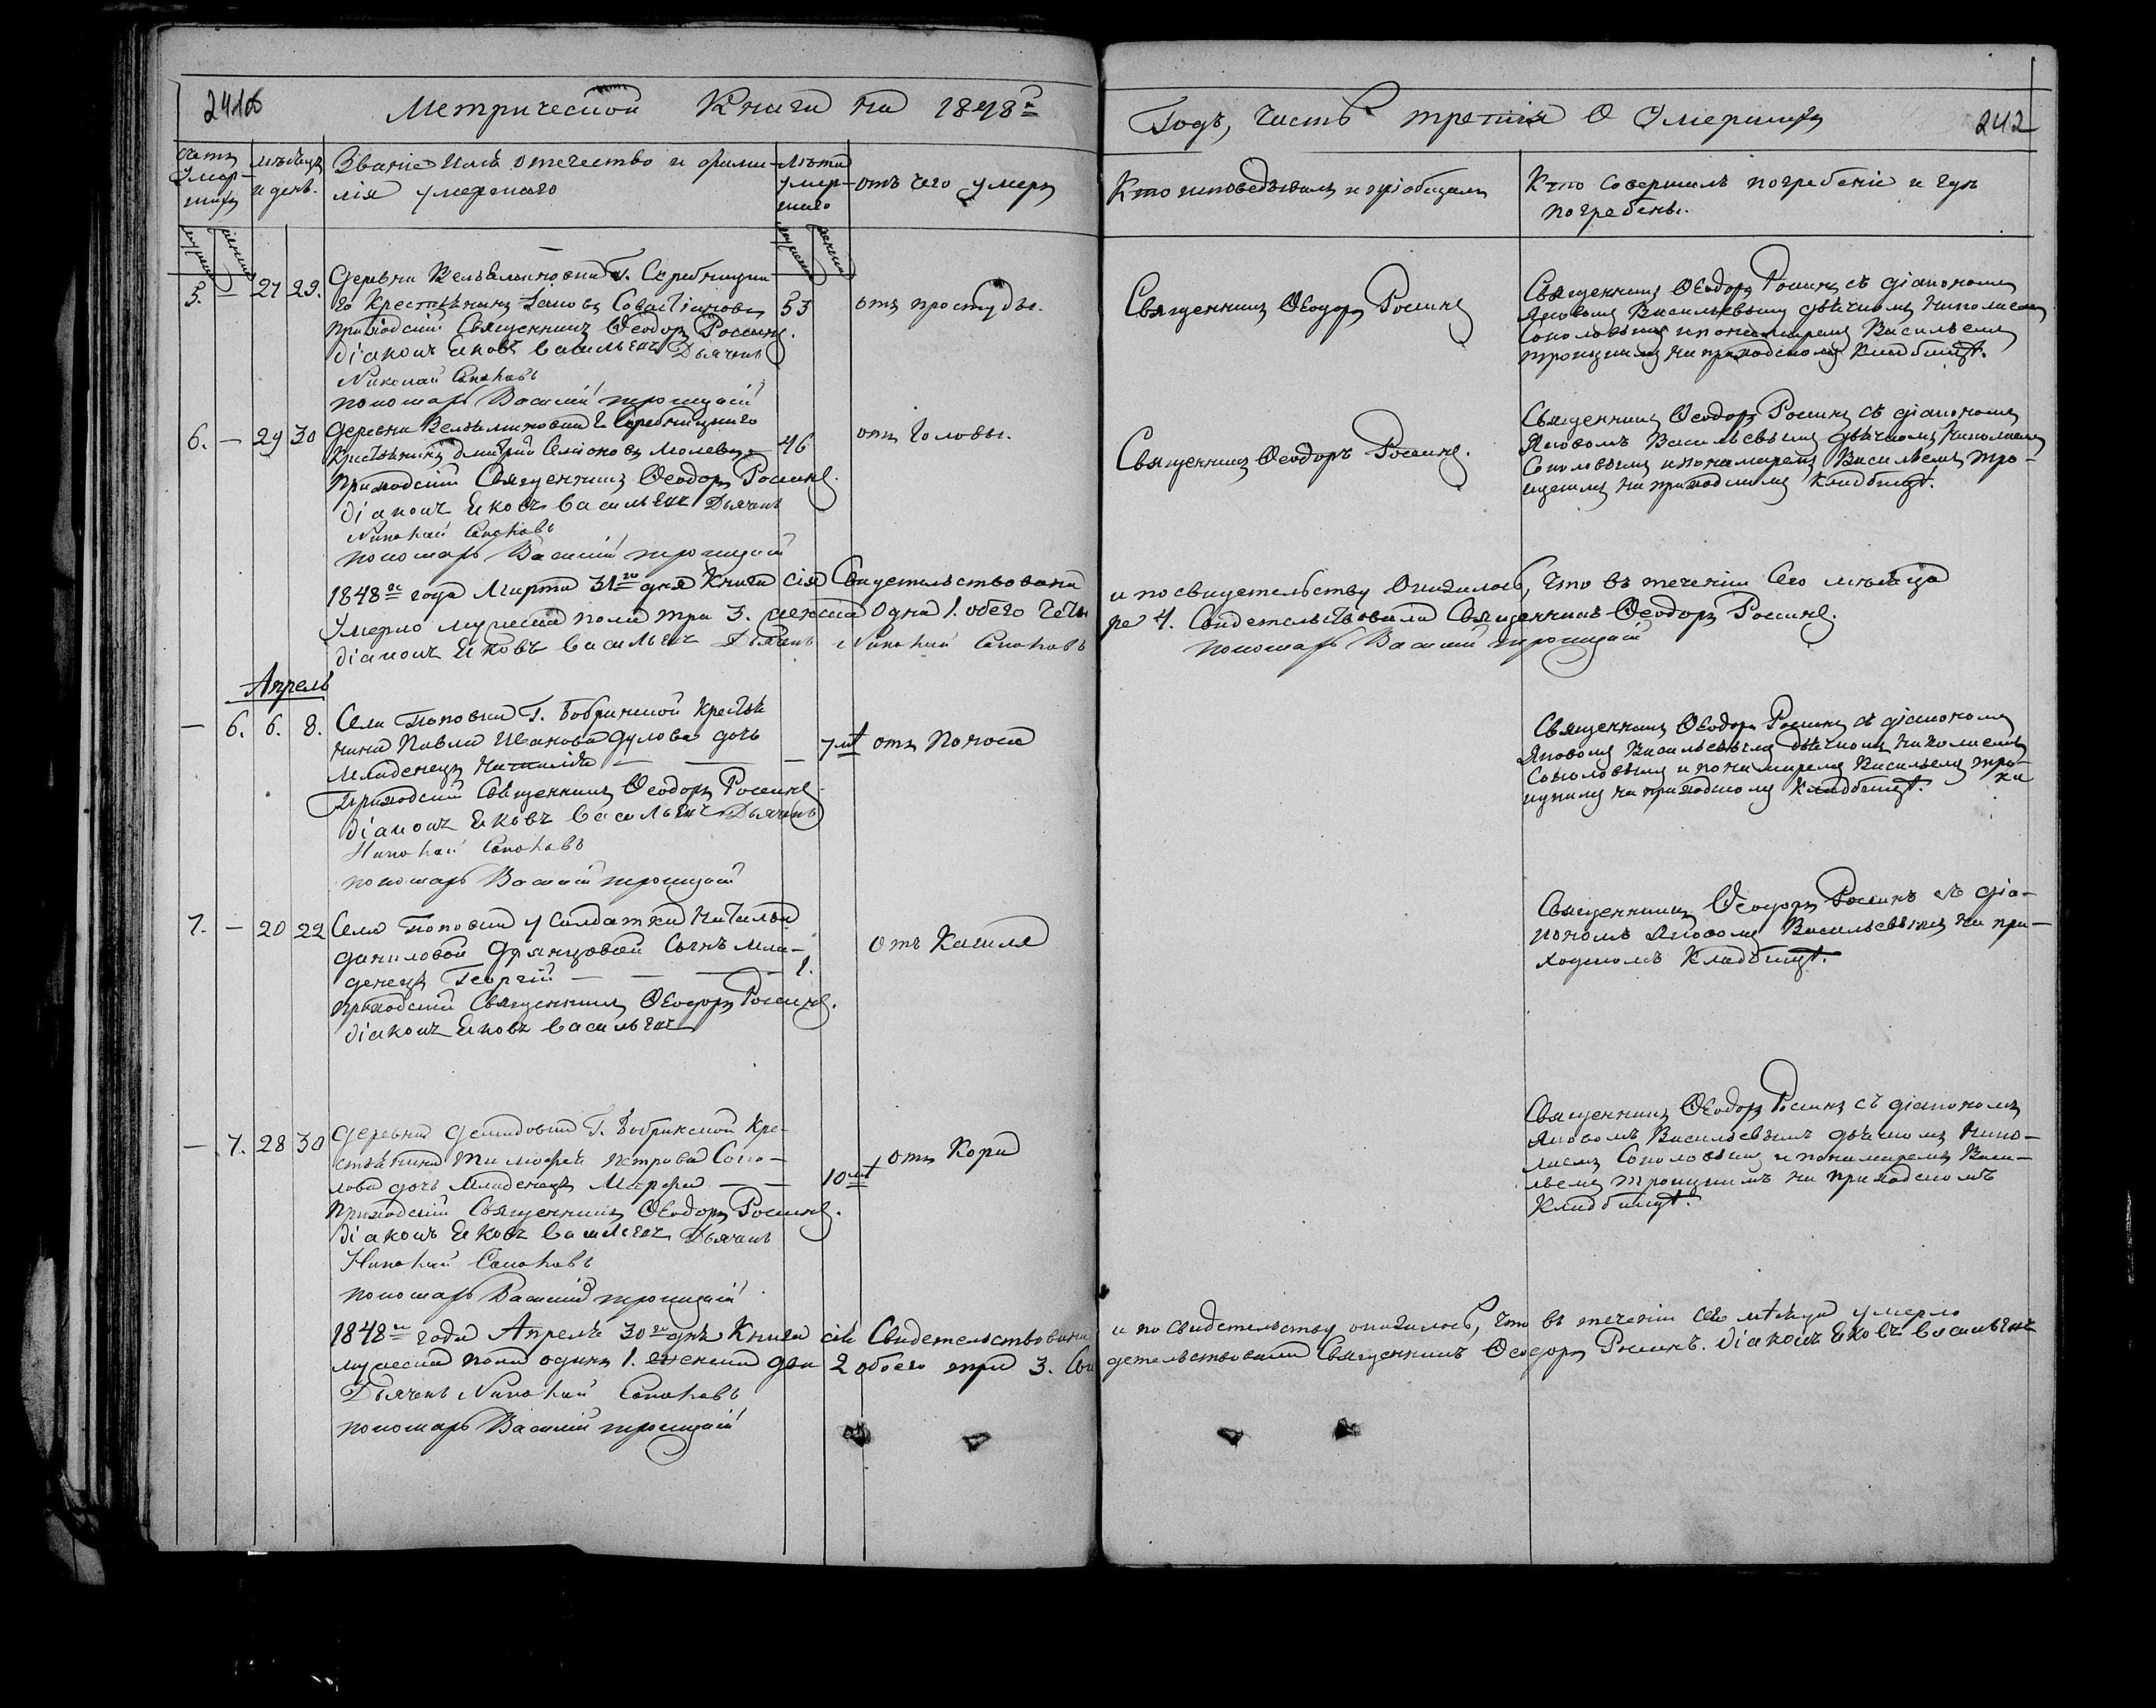 241об
Метрической Книги на 1848го
Годъ, часть третія О Умершихъ
242
счетъ умер-шихъ
мѣсяцъ и день.
Званіе имя отечество и фами-
лія умершаго
Лѣта умер-шаго
отъ чего умеръ
Кто исповѣдывалъ и пріобщалъ
Кто совершилъ погребеніе и гдѣ
погребены.
мужеска
женска
мужеска
женска
5. — 27 29.
Деревни Г. Скребницка
го Крестьянинъ
53
отъ простуды.
приходскій Священникъ Ѳеодоръ Росинъ.
діаконъ Яковъ Васильевъ Дьячекъ
Николай Соколовъ
пономарь Василій троицкій
Священникъ Ѳеодоръ Росинъ
Священникъ Ѳеодоръ Росинъ съ діакономъ
Яковомъ Васильевымъ дьячкомъ Николаемъ
Соколовымъ и пономаремъ Васильемъ
троицкимъ на приходскомъ кладбищѣ.
6. — 29 30
Деревни Г. Скребницкаго
Крестьянинъ Дмитрій
46
отъ Головы.
Приходскій Священникъ Ѳеодоръ Росинъ.
діаконъ Яковъ Васильевъ Дьячекъ
Николай Соколовъ
пономарь Василій троицкій
Священникъ Ѳеодоръ Росинъ.
Священникъ Ѳеодоръ Росинъ съ діакономъ
Яковомъ Васильевымъ дьячкомъ Николаемъ
Соколовымъ и пономаремъ Васильемъ Тро-
ицкимъ на приходскомъ кладбищѣ.
1848го года Марта 31го дня Книга сія Свидетельствована
и по свидетельству оказалось, что въ теченіи Сего мѣсяца
Умерло мужеска пола три 3. женска одна 1. обего четы
ре 4. Свидетельствовали Священникъ Ѳеодоръ Росинъ.
діаконъ Яковъ Васильевъ Дьячекъ Николай Соколовъ
пономарь Василій троицкій
Апрель
— 6. 6. 8.
Села Поповки Г. Бобринской Крестья
нина Павла Иванова Дулова дочь
младенецъ Наталія — — —
7 мѣ
отъ Поноса
Приходскій Священникъ Ѳеодоръ Росинъ
діаконъ Яковъ Васильевъ Дьячекъ
Николай Соколовъ
пономарь Василій троицкій
Священникъ Ѳеодоръ Росинъ съ діакономъ
Яковомъ Васильевымъ дьячкомъ Николаемъ
Соколовымъ и пономаремъ Васильемъ тро-
ицкимъ на приходскомъ кладбищѣ.
7. — 20 22
Села Поповки у Солдатки Натальи
Даниловой Сынъ мла-
денецъ Георгій — — —
1.
Отъ Кашля
приходскій Священникъ Ѳеодоръ Росинъ.
діаконъ Яковъ Васильевъ
Священникъ Ѳеодоръ Росинъ съ діа-
кономъ Яковомъ Васильевымъ на при-
ходскомъ Кладбищѣ.
— 7. 28 30
Деревни Демидовки Г. Бобринской Кре-
стьянина Тимофея Петрова Соко-
лова дочь младенецъ Марфа — —
10 мѣ
отъ Кори
Приходскій Священникъ Ѳеодоръ Росинъ.
діаконъ Яковъ Васильевъ Дьячекъ
Николай Соколовъ
пономарь Василій троицкій
Священникъ Ѳеодоръ Росинъ съ діакономъ
Яковомъ Васильевымъ дьячкомъ Нико-
лаемъ Соколовымъ и пономаремъ Васи-
льемъ Троицкимъ на приходскомъ
Кладбищѣ.
1848го года Апреля 30го дня Книга сія Свидетельствована
и по свидетельству оказалось, что въ теченіи сего мѣсяца умерло
мужеска пола одинъ 1. женска два 2 обоего три 3. Сви
детельствовали Священникъ Ѳеодоръ Росинъ. діаконъ Яковъ Васильевъ
Дьячекъ Николай Соколовъ
пономарь Василій троицкій